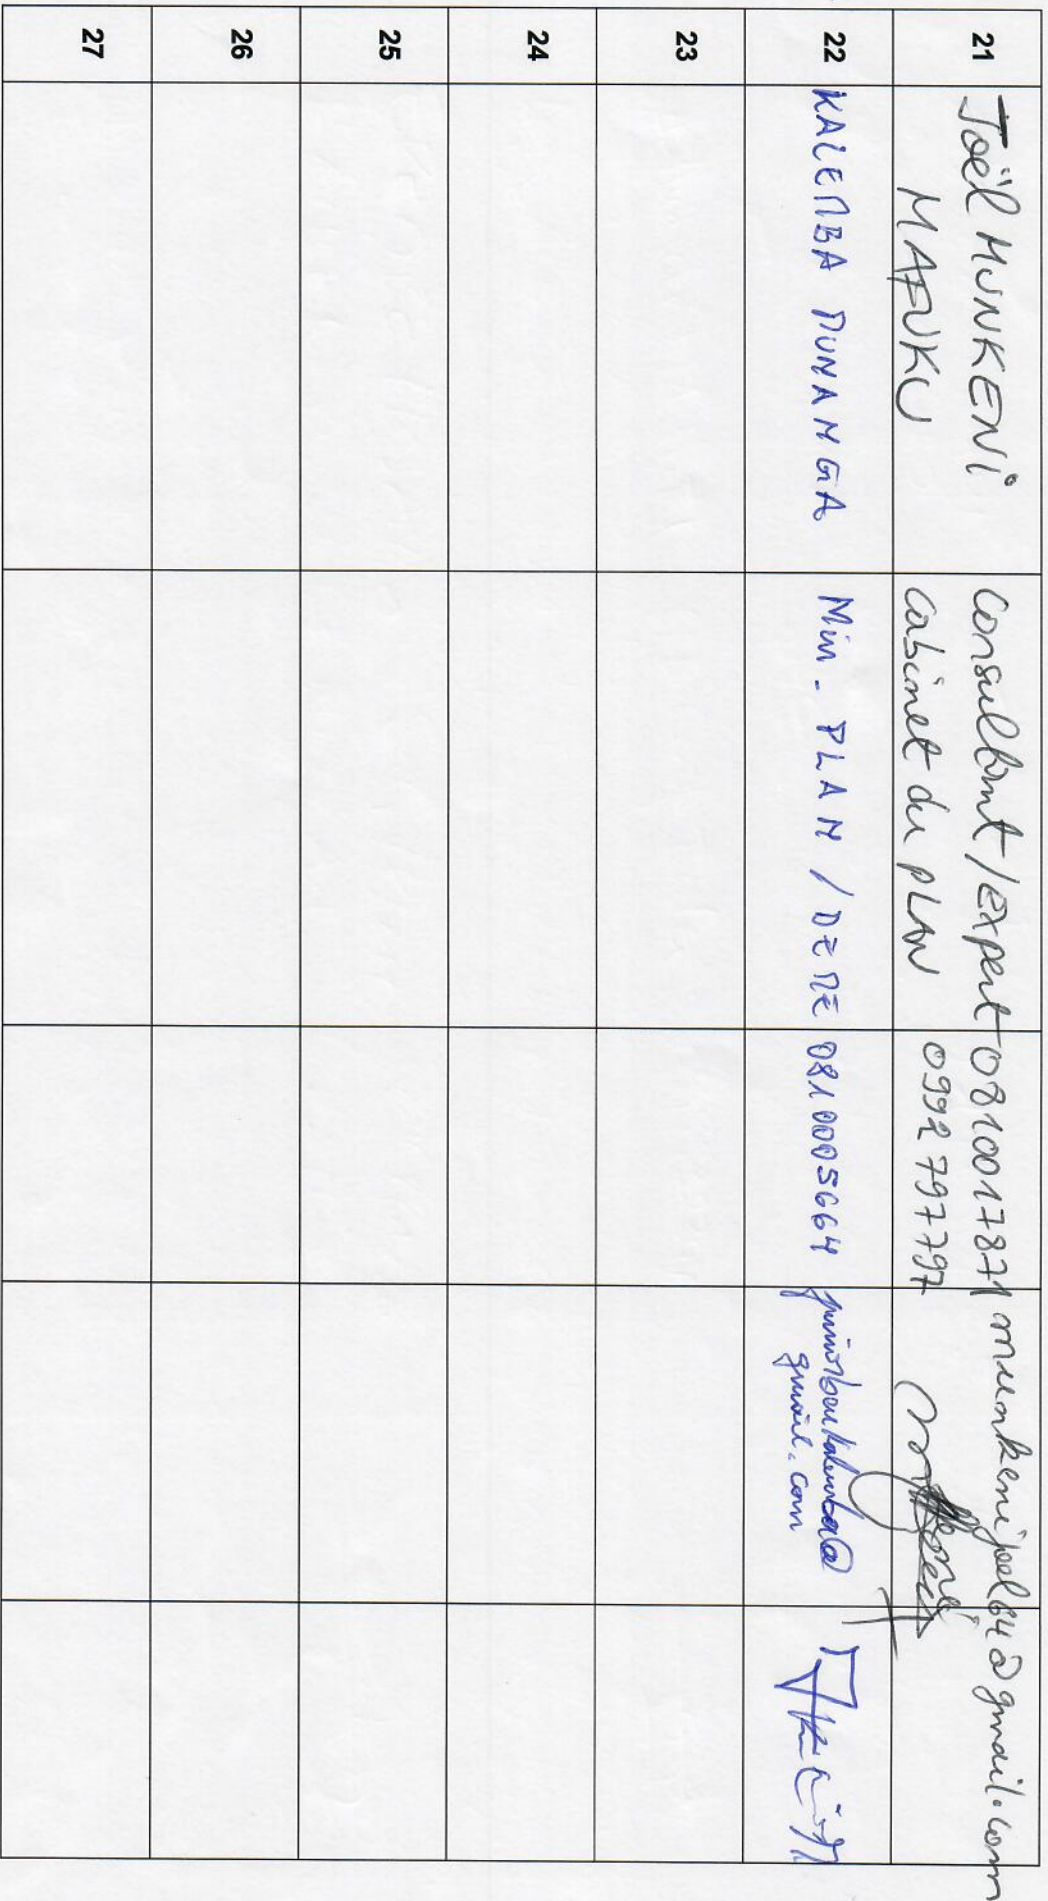 21
Joël MUNKENI
MAFUKU
Consultant/Expert
Cabinet du PLAN
0810017871
0992797797
munkenijoel64@gmail.com
22
KALEMBA MUNANGA
Min. PLAN /
0810005664
gmail.com
23
24
25
26
27